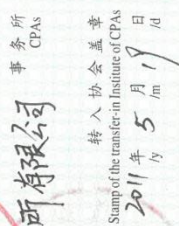 事务所
CPAs
所有限公司
转入协会盖章
Stamp of the transfer-in Institute of CPAs
2011年5月19日
/y /m /d